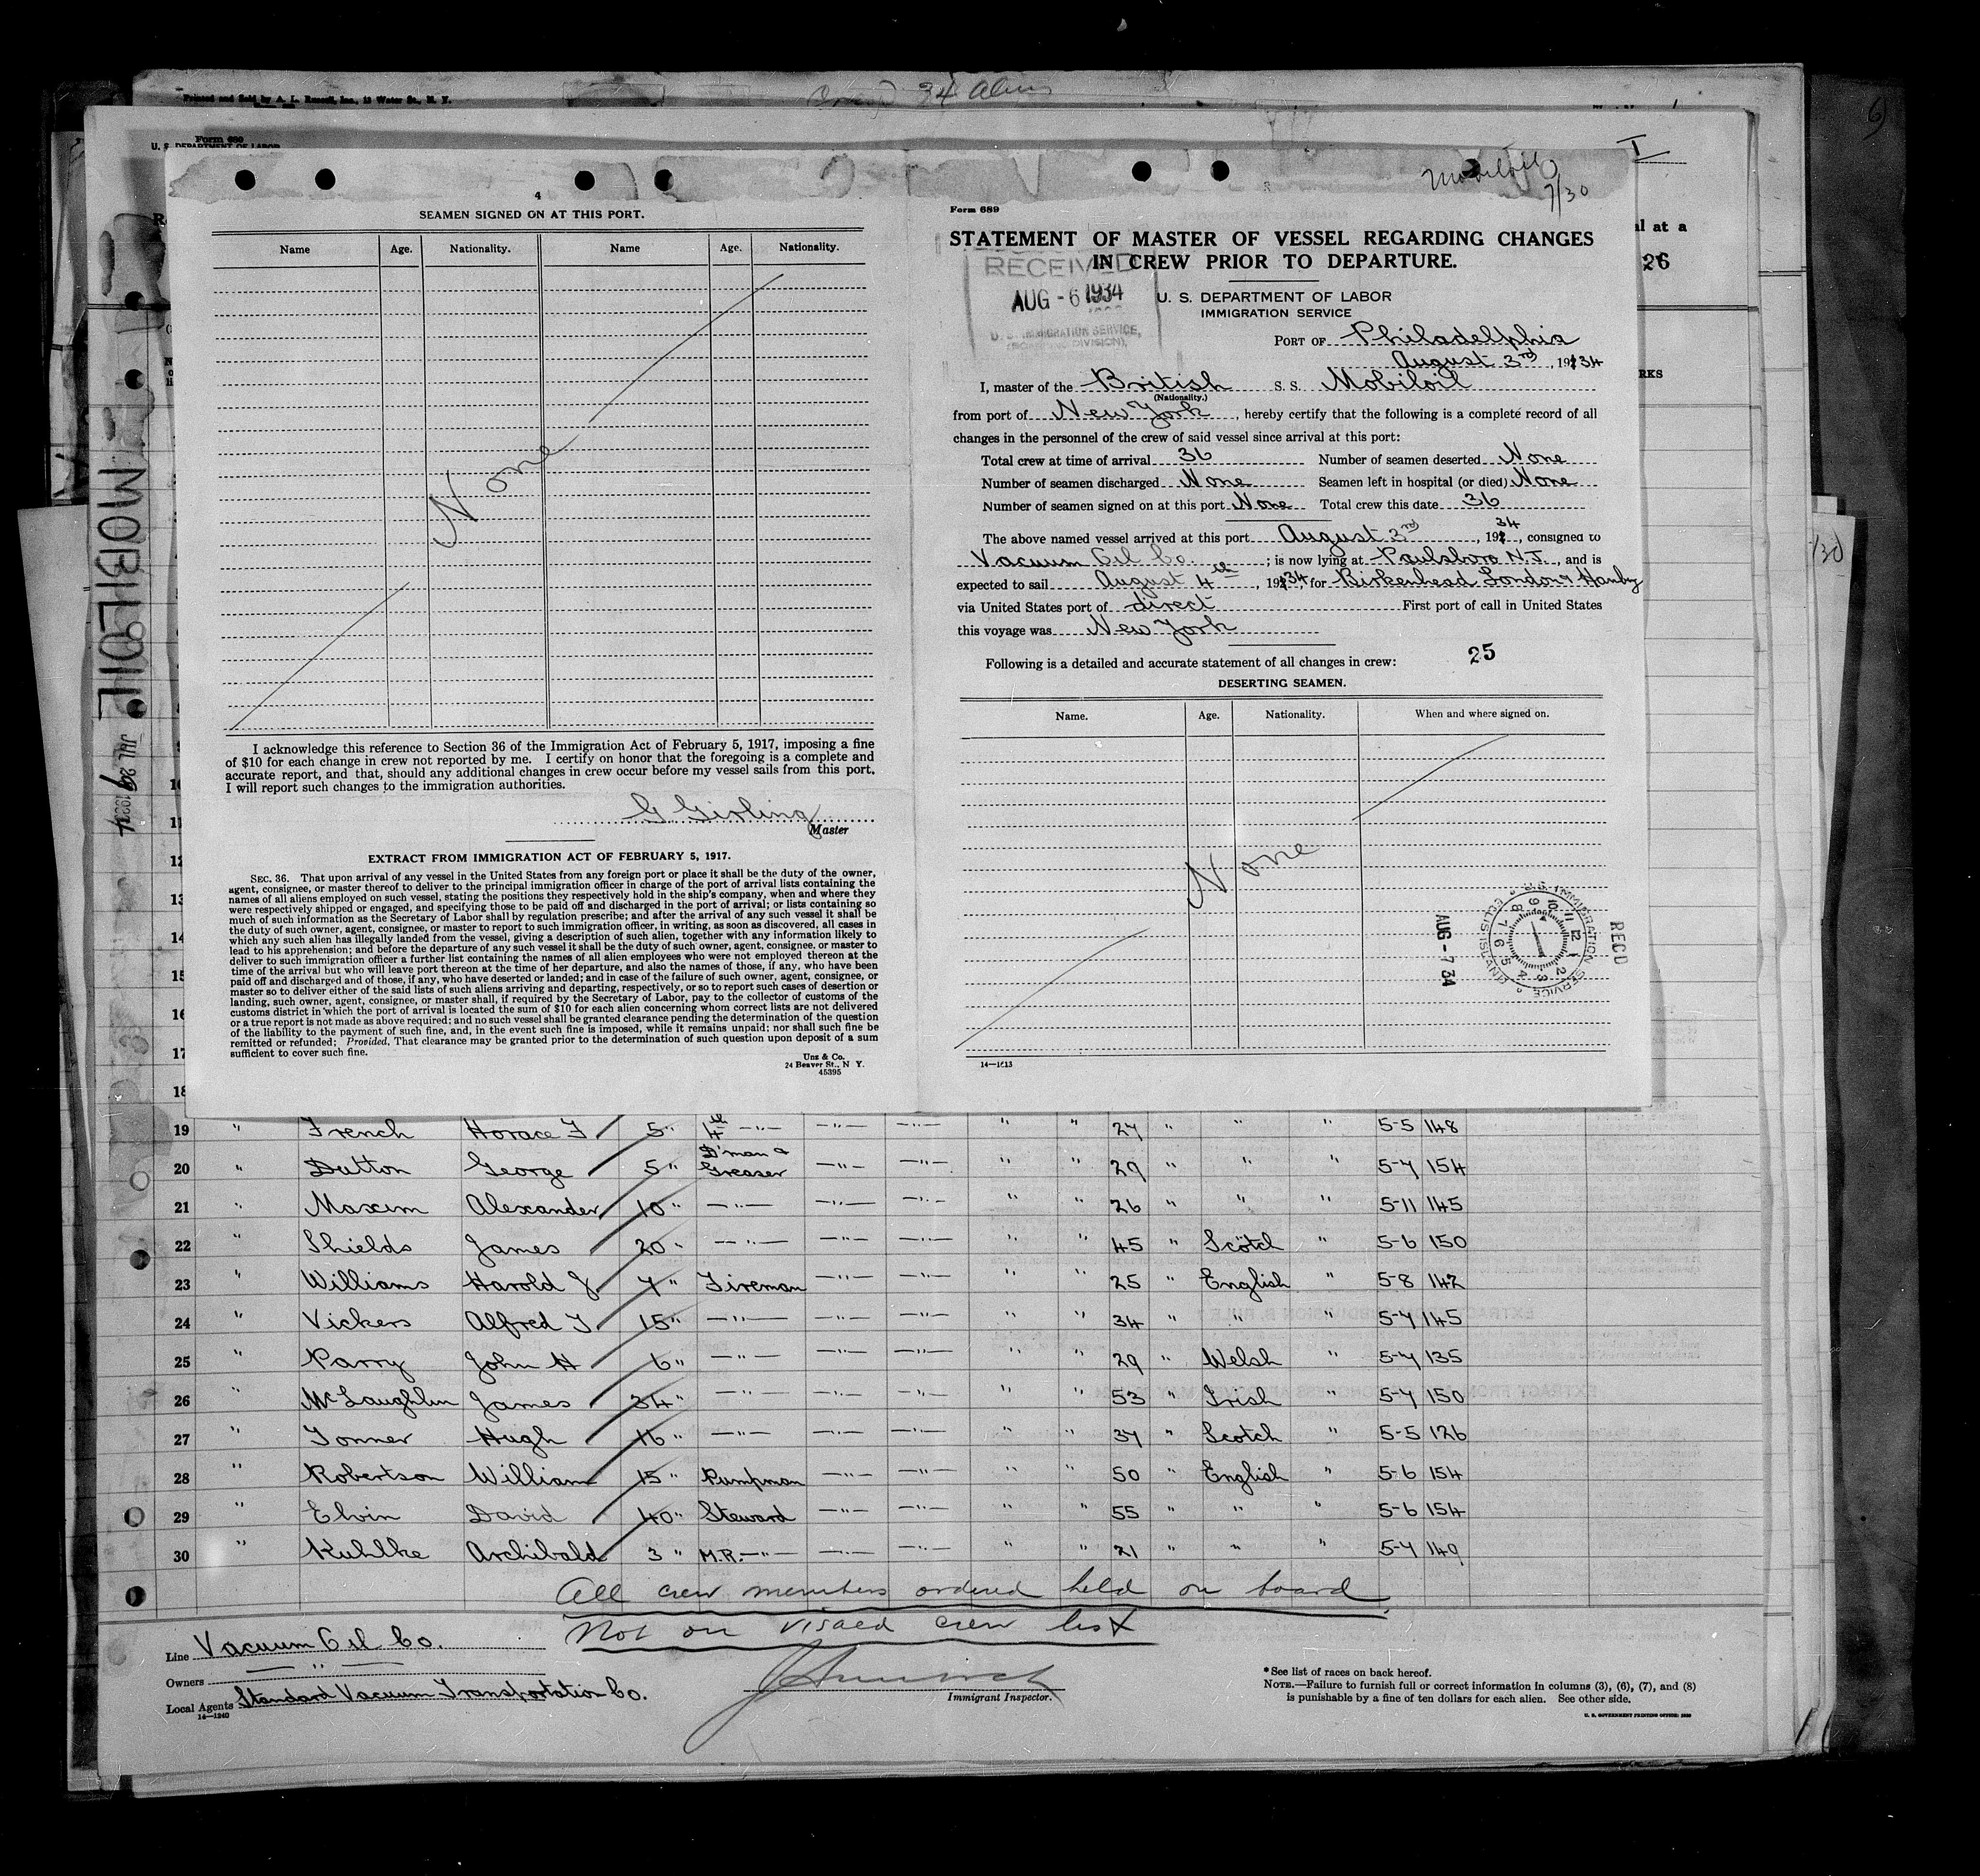 Printed and Sold by A. L. Russell, Inc., 15 Water St., N. Y.
34 Aliens
Form 689
U. S. DEPARTMENT OF LABOR
al at a
26
RKS
MOBILOIL
JUL 29 1934
4
SEAMEN SIGNED ON AT THIS PORT.
Name Age. Nationality. Name Age. Nationality.
None
I acknowledge this reference to Section 36 of the Immigration Act of February 5, 1917, imposing a fine
of $10 for each change in crew not reported by me. I certify on honor that the foregoing is a complete and
accurate report, and that, should any additional changes in crew occur before my vessel sails from this port,
I will report such changes to the immigration authorities.
G Girling
Master
EXTRACT FROM IMMIGRATION ACT OF FEBRUARY 5, 1917.
SEC. 36. That upon arrival of any vessel in the United States from any foreign port or place it shall be the duty of the owner,
agent, consignee, or master thereof to deliver to the principal immigration officer in charge of the port of arrival lists containing the
names of all aliens employed on such vessel, stating the positions they respectively hold in the ship's company, when and where they
were respectively shipped or engaged, and specifying those to be paid off and discharged in the port of arrival; or lists containing so
much of such information as the Secretary of Labor shall by regulation prescribe; and after the arrival of any such vessel it shall be
the duty of such owner, agent, consignee, or master to report to such immigration officer, in writing, as soon as discovered, all cases in
which any such alien has illegally landed from the vessel, giving a description of such alien, together with any information likely to
lead to his apprehension; and before the departure of any such vessel it shall be the duty of such owner, agent, consignee, or master to
deliver to such immigration officer a further list containing the names of all alien employees who were not employed thereon at the
time of the arrival but who will leave port thereon at the time of her departure, and also the names of those, if any, who have been
paid off and discharged and of those, if any, who have deserted or landed; and in case of the failure of such owner, agent, consignee, or
master so to deliver either of the said lists of such aliens arriving and departing, respectively, or so to report such cases of desertion or
landing, such owner, agent, consignee, or master shall, if required by the Secretary of Labor, pay to the collector of customs of the
customs district in which the port of arrival is located the sum of $10 for each alien concerning whom correct lists are not delivered
or a true report is not made as above required; and no such vessel shall be granted clearance pending the determination of the question
of the liability to the payment of such fine, and, in the event such fine is imposed, while it remains unpaid; nor shall such fine be
remitted or refunded; Provided, That clearance may be granted prior to the determination of such question upon deposit of a sum
sufficient to cover such fine.
Unz & Co.
24 Beaver St., N. Y.
45395
Mobiloil
7/30
Form 689
STATEMENT OF MASTER OF VESSEL REGARDING CHANGES
IN CREW PRIOR TO DEPARTURE.
RECEIVED
AUG - 6 1934
U. S. IMMIGRATION SERVICE,
U. S. DEPARTMENT OF LABOR
IMMIGRATION SERVICE
PORT OF Philadelphia
August 3rd, 1934
I, master of the British S. S. Mobiloil
(Nationality.)
from port of New York, hereby certify that the following is a complete record of all
changes in the personnel of the crew of said vessel since arrival at this port:
Total crew at time of arrival 36 Number of seamen deserted None
Number of seamen discharged None Seamen left in hospital (or died) None
Number of seamen signed on at this port None Total crew this date 36
The above named vessel arrived at this port August 3rd, 1934, consigned to
Vacuum Oil Co.; is now lying at Paulsboro N.J., and is
expected to sail August 4th, 1934, for Birkenhead London & Hambg
via United States port of direct First port of call in United States
this voyage was New York
Following is a detailed and accurate statement of all changes in crew: 25
DESERTING SEAMEN.
Name. Age. Nationality. When and where signed on.
None
RECD
U.S. IMMIGRATION SERVICE ELLIS ISLAND
AUG -7 34
14—1213
10
11
12
13
14
15
16
17
18
19 " French Horace F 5" 4th —"— —"— —"— " " 27 " " " 5-5 148
20 " Dutton George 5" D'man & Greaser —"— —"— " " 29 " " " 5-7 154
21 " Maxim Alexander 10" —"— —"— —"— " " 26 " " " 5-11 145
22 " Shields James 20" —"— —"— —"— " " 45 " Scotch " 5-6 150
23 " Williams Harold J 7" Fireman —"— —"— " " 25 " English " 5-8 142
24 " Vickers Alfred T 15" —"— —"— —"— " " 34 " " " 5-7 145
25 " Parry John H 6" —"— —"— —"— " " 29 " Welsh " 5-7 135
26 " McLaughlin James 34" —"— —"— —"— " " 53 " Irish " 5-7 150
27 " Tonner Hugh 16" —"— —"— —"— " " 37 " Scotch " 5-5 126
28 " Robertson William 15" Pumpman —"— —"— " " 50 " English " 5-6 154
29 " Elvin David 40" Steward —"— —"— " " 55 " " " 5-6 154
30 " Kuhlke Archibald 3" M.R. —"— —"— —"— " " 21 " " " 5-7 149
All crew members ordered held on board
Not on visaed crew list
Line Vacuum Oil Co.
Owners — " —
Local Agents Standard Vacuum Transportation Co.
14—1240
Immigrant Inspector.
*See list of races on back hereof.
NOTE.—Failure to furnish full or correct information in columns (3), (6), (7), and (8)
is punishable by a fine of ten dollars for each alien. See other side.
U. S. GOVERNMENT PRINTING OFFICE: